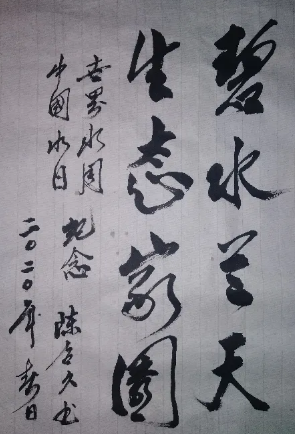 碧水兰天
生态家園
世界水周
中國水日
紀念
陈久书
二〇二〇年春日